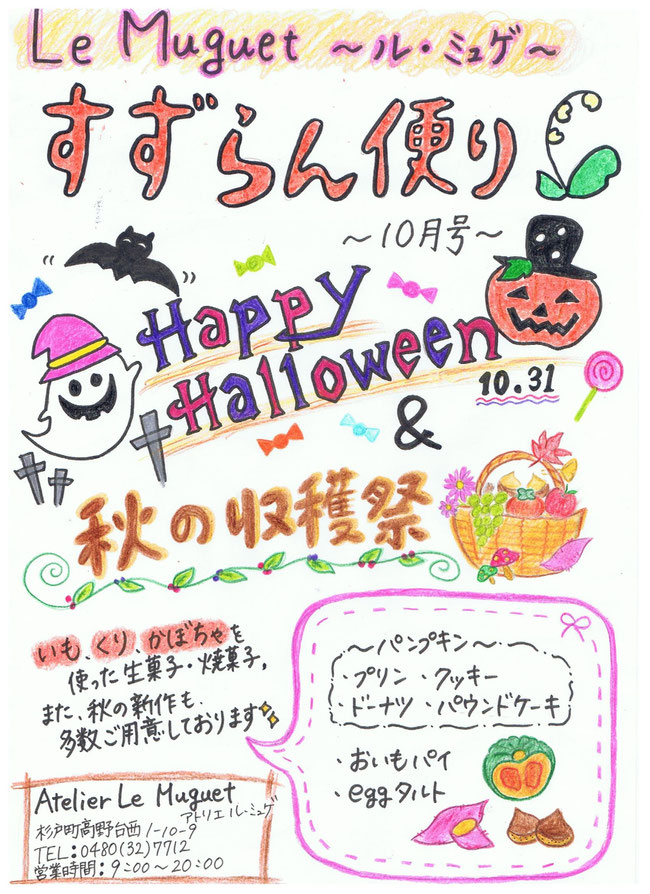 Le Muguet ～ル・ミュゲ～
すずらん便り
～10月号～
Happy
Halloween
10.31
&
秋の収穫祭
いも、くり、かぼちゃを
使った生菓子・焼菓子,
また、秋の新作も
多数ご用意しております
～パンプキン～
・プリン ・クッキー
・ドーナツ ・パウンドケーキ
・おいもパイ
・eggタルト
Atelier Le Muguet
アトリエ ル・ミュゲ
杉戸町高野台西1-10-9
TEL:0480(32)7712
営業時間:9:00～20:00